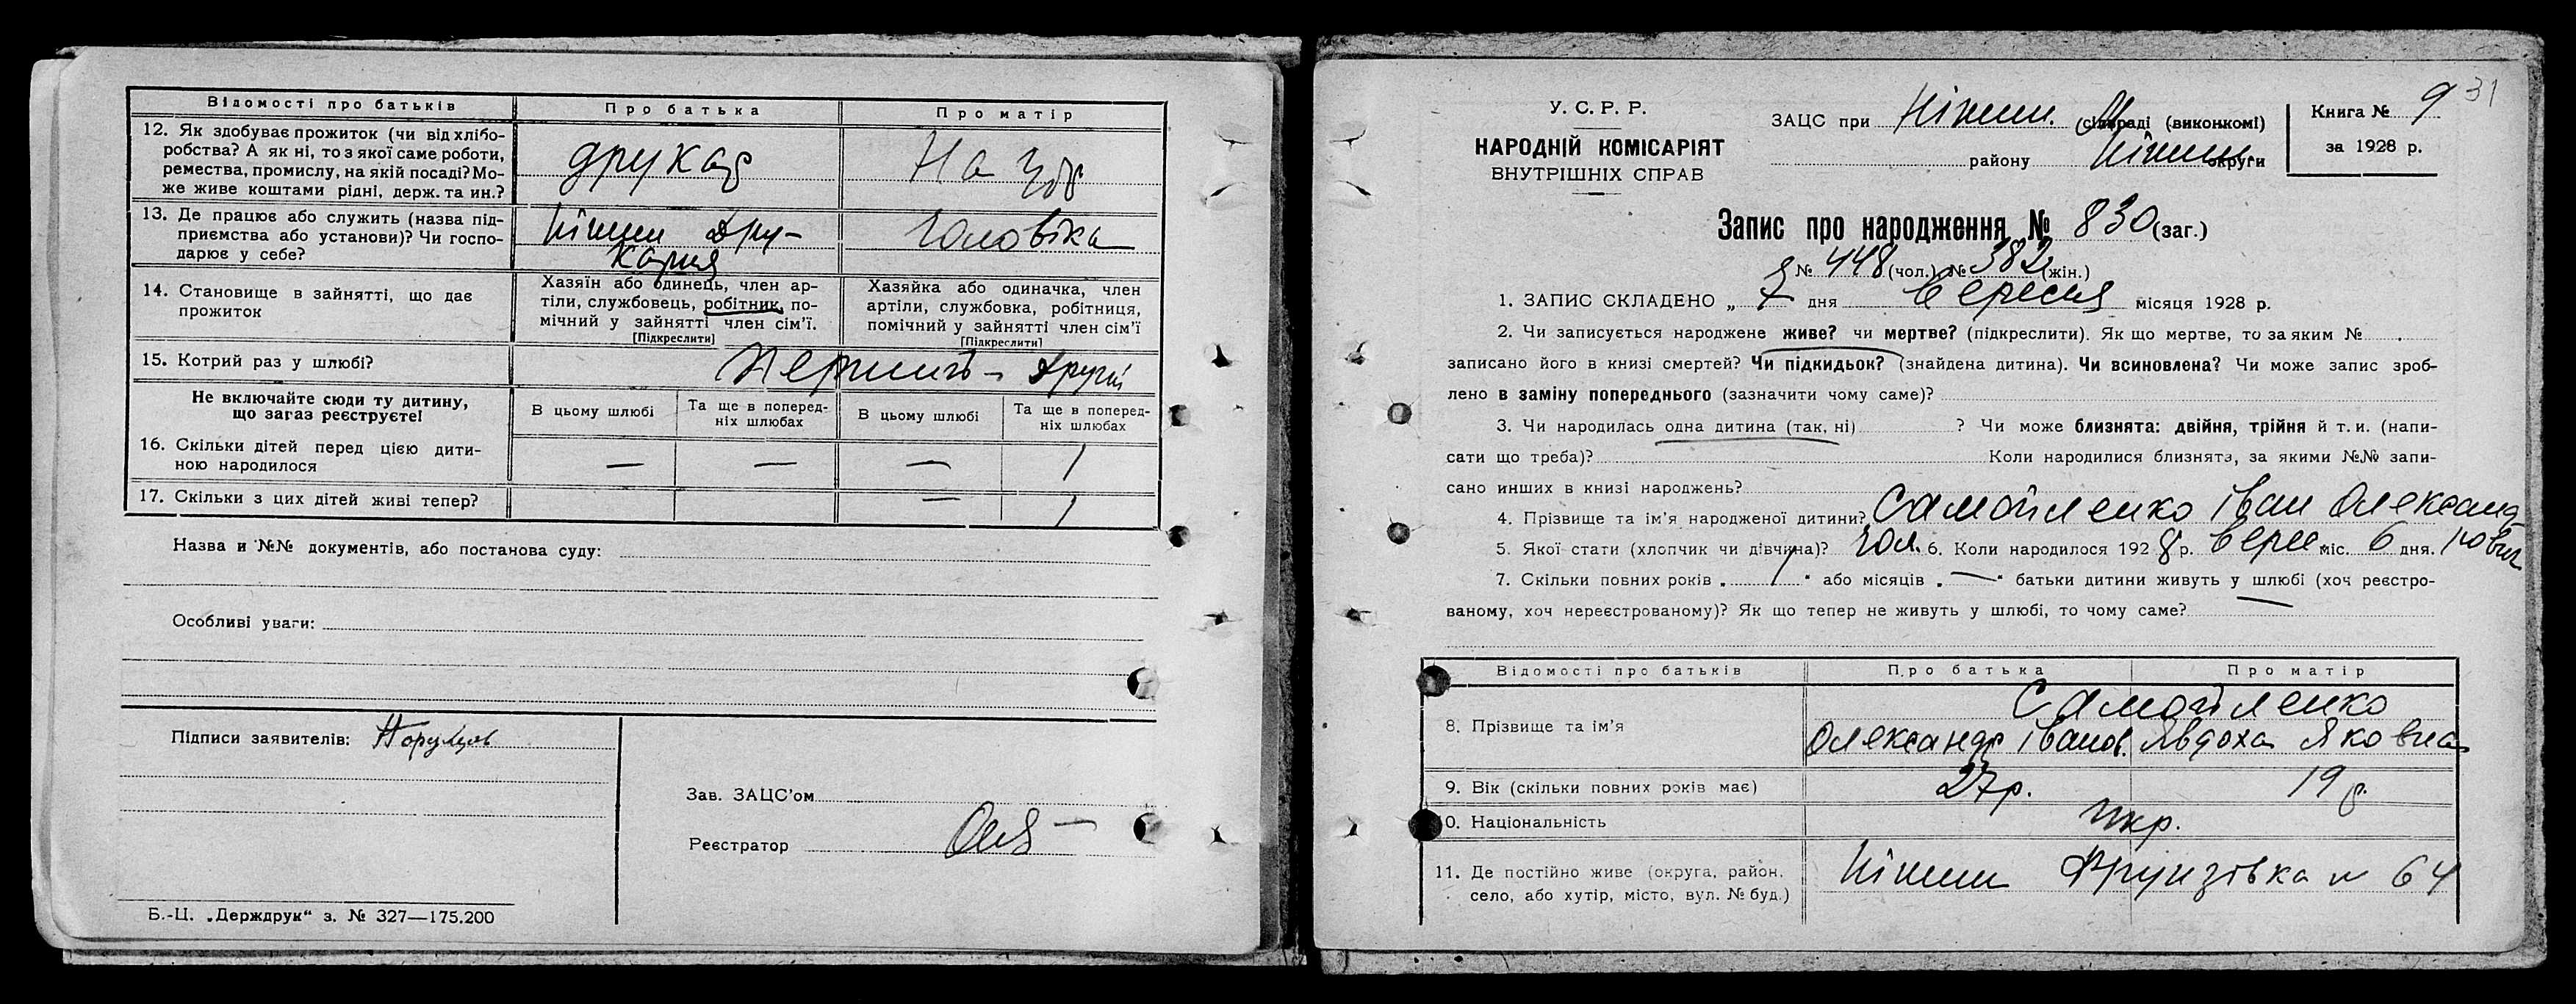 Відомості про батьків Про батька Про матір
12. Як здобуває прожиток (чи від хлібо-
робства? А як ні, то з якої саме роботи,
ремества, промислу, на якій посаді? Мо-
же живе коштами рідні, держ. та ин.?
друкар
На зб
13. Де працює або служить (назва під-
приємства або установи)? Чи госпо-
дарює у себе?
Ніжин Дру-
карня
чоловіка
14. Становище в зайнятті, що дає
прожиток
Хазяїн або одинець, член ар-
тіли, службовець, робітник, по-
мічний у зайнятті член сім'ї.
[Підкреслити]
Хазяйка або одиначка, член
артіли, службовка, робітниця,
помічний у зайнятті член сім'ї
[Підкреслити]
15. Котрий раз у шлюбі? Перший – Другий
Не включайте сюди ту дитину,
що загаз реєструєте!
В цьому шлюбі
Та ще в поперед-
ніх шлюбах
В цьому шлюбі
Та ще в поперед-
ніх шлюбах
16. Скільки дітей перед цією дити-
ною народилося
— — — 1
17. Скільки з цих дітей живі тепер? — 1
Назва и №№ документів, або постанова суду:
Особливі уваги:
Підписи заявителів:
Зав. ЗАЦС'ом
Реєстратор
Б.-Ц. „Держдрук“ з. № 327—175.200
31
У. С. Р. Р.
НАРОДНІЙ КОМІСАРІЯТ
ВНУТРІШНІХ СПРАВ
ЗАЦС при Ніжин. М (сільраді (виконкомі)
району Ніжин. округи
Книга № 9
за 1928 р.
Запис про народження № 830 (заг.)
№ 448 (чол.) № 382 (жін.)
1. ЗАПИС СКЛАДЕНО „ 7 дня Вересня місяця 1928 р.
2. Чи записується народжене живе? чи мертве? (підкреслити). Як що мертве, то за яким №
записано його в книзі смертей? Чи підкидьок? (знайдена дитина). Чи всиновлена? Чи може запис зроб-
лено в заміну попереднього (зазначити чому саме)?
3. Чи народилась одна дитина (так, ні) ? Чи може близнята: двійня, трійня й т. и. (напи-
сати що треба)? Коли народилися близнята, за якими №№ запи-
сано инших в книзі народжень?
4. Прізвище та ім'я народженої дитини? Самойленко Іван Олександ-
5. Якої стати (хлопчик чи дівчина)? Чол. 6. Коли народилося 1928 р. Верес міс. 6 дня. рович
7. Скільки повних років „ 1 “ або місяців „ — “ батьки дитини живуть у шлюбі (хоч реєстро-
ваному, хоч нереєстрованому)? Як що тепер не живуть у шлюбі, то чому саме?
Відомості про батьків Про батька Про матір
8. Прізвище та ім'я
Самойленко
Олександр Іванов. Явдоха Яковна
9. Вік (скільки повних років має) 27 р. 19 р.
10. Національність Укр.
11. Де постійно живе (округа, район,
село, або хутір, місто, вул. № буд.)
Ніжин Фрунзівка № 64